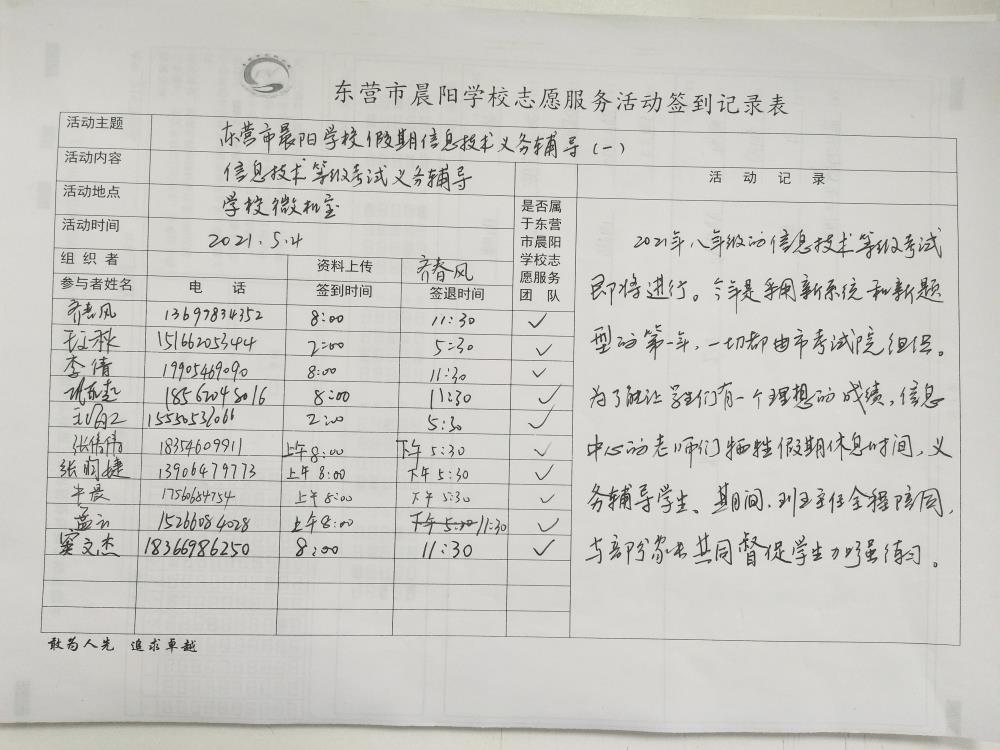 东营市晨阳学校志愿服务活动签到记录表
活动主题 东营市晨阳学校假期信息技术义务辅导（一）
活动内容 信息技术等级考试义务辅导
活动地点 学校微机室
活动时间 2021.5.4
是否属
于东营
市晨阳
学校志
愿服务
团 队
组 织 者 资料上传 齐春风
参与者姓名 电 话 签到时间 签退时间
齐春风 13697834352 8:00 11:30 ✓
15166205344 2:00 5:30 ✓
李倩 19905469090 8:00 11:30 ✓
18562048016 8:00 11:30 ✓
15550532066 2:00 5:30 ✓
张倩倩 18354609911 上午8:00 下午5:30 ✓
张昫婕 13906479773 上午8:00 下午5:30 ✓
17560684754 上午8:00 下午5:30 ✓
15266084028 上午8:00 下午5:30 11:30 ✓
窦文杰 18366986250 8:00 11:30 ✓
活 动 记 录
2021年八年级的信息技术等级考试
即将进行。今年是采用新系统和新题
型的第一年，一切都由市考试院组织。
为了能让学生们有一个理想的成绩，信息
中心的老师们牺牲假期休息时间，义
务辅导学生、期间，班主任全程陪同，
与部分家长共同督促学生加强练习。
敢为人先 追求卓越